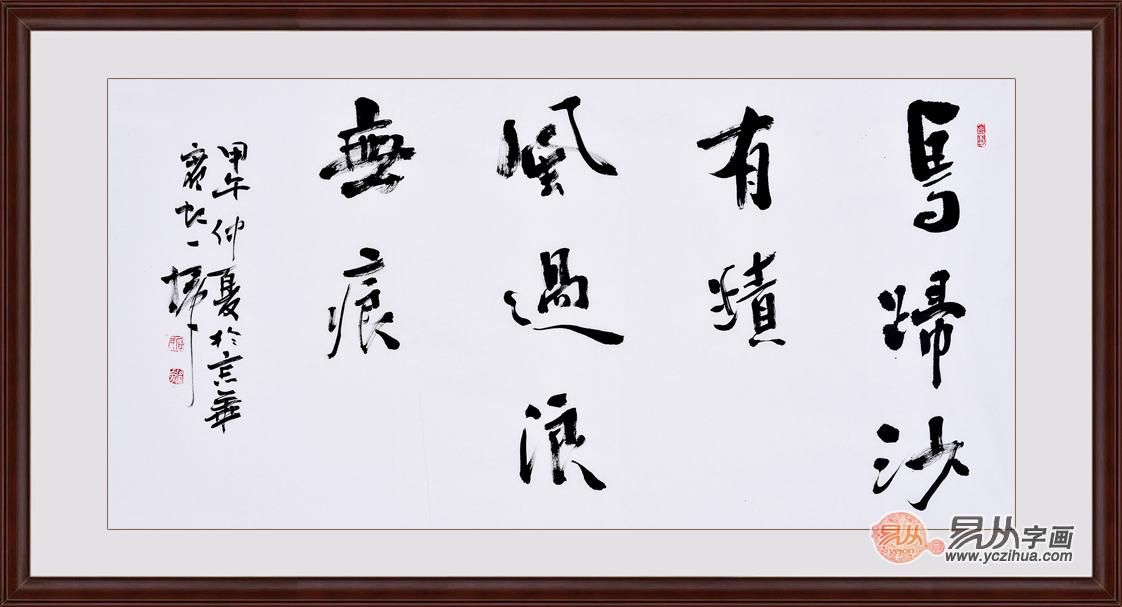 馬蹄沙
有蹟
風過浪
無痕
甲午仲夏於京華
一
易从
易从字画
www.yczihua.com